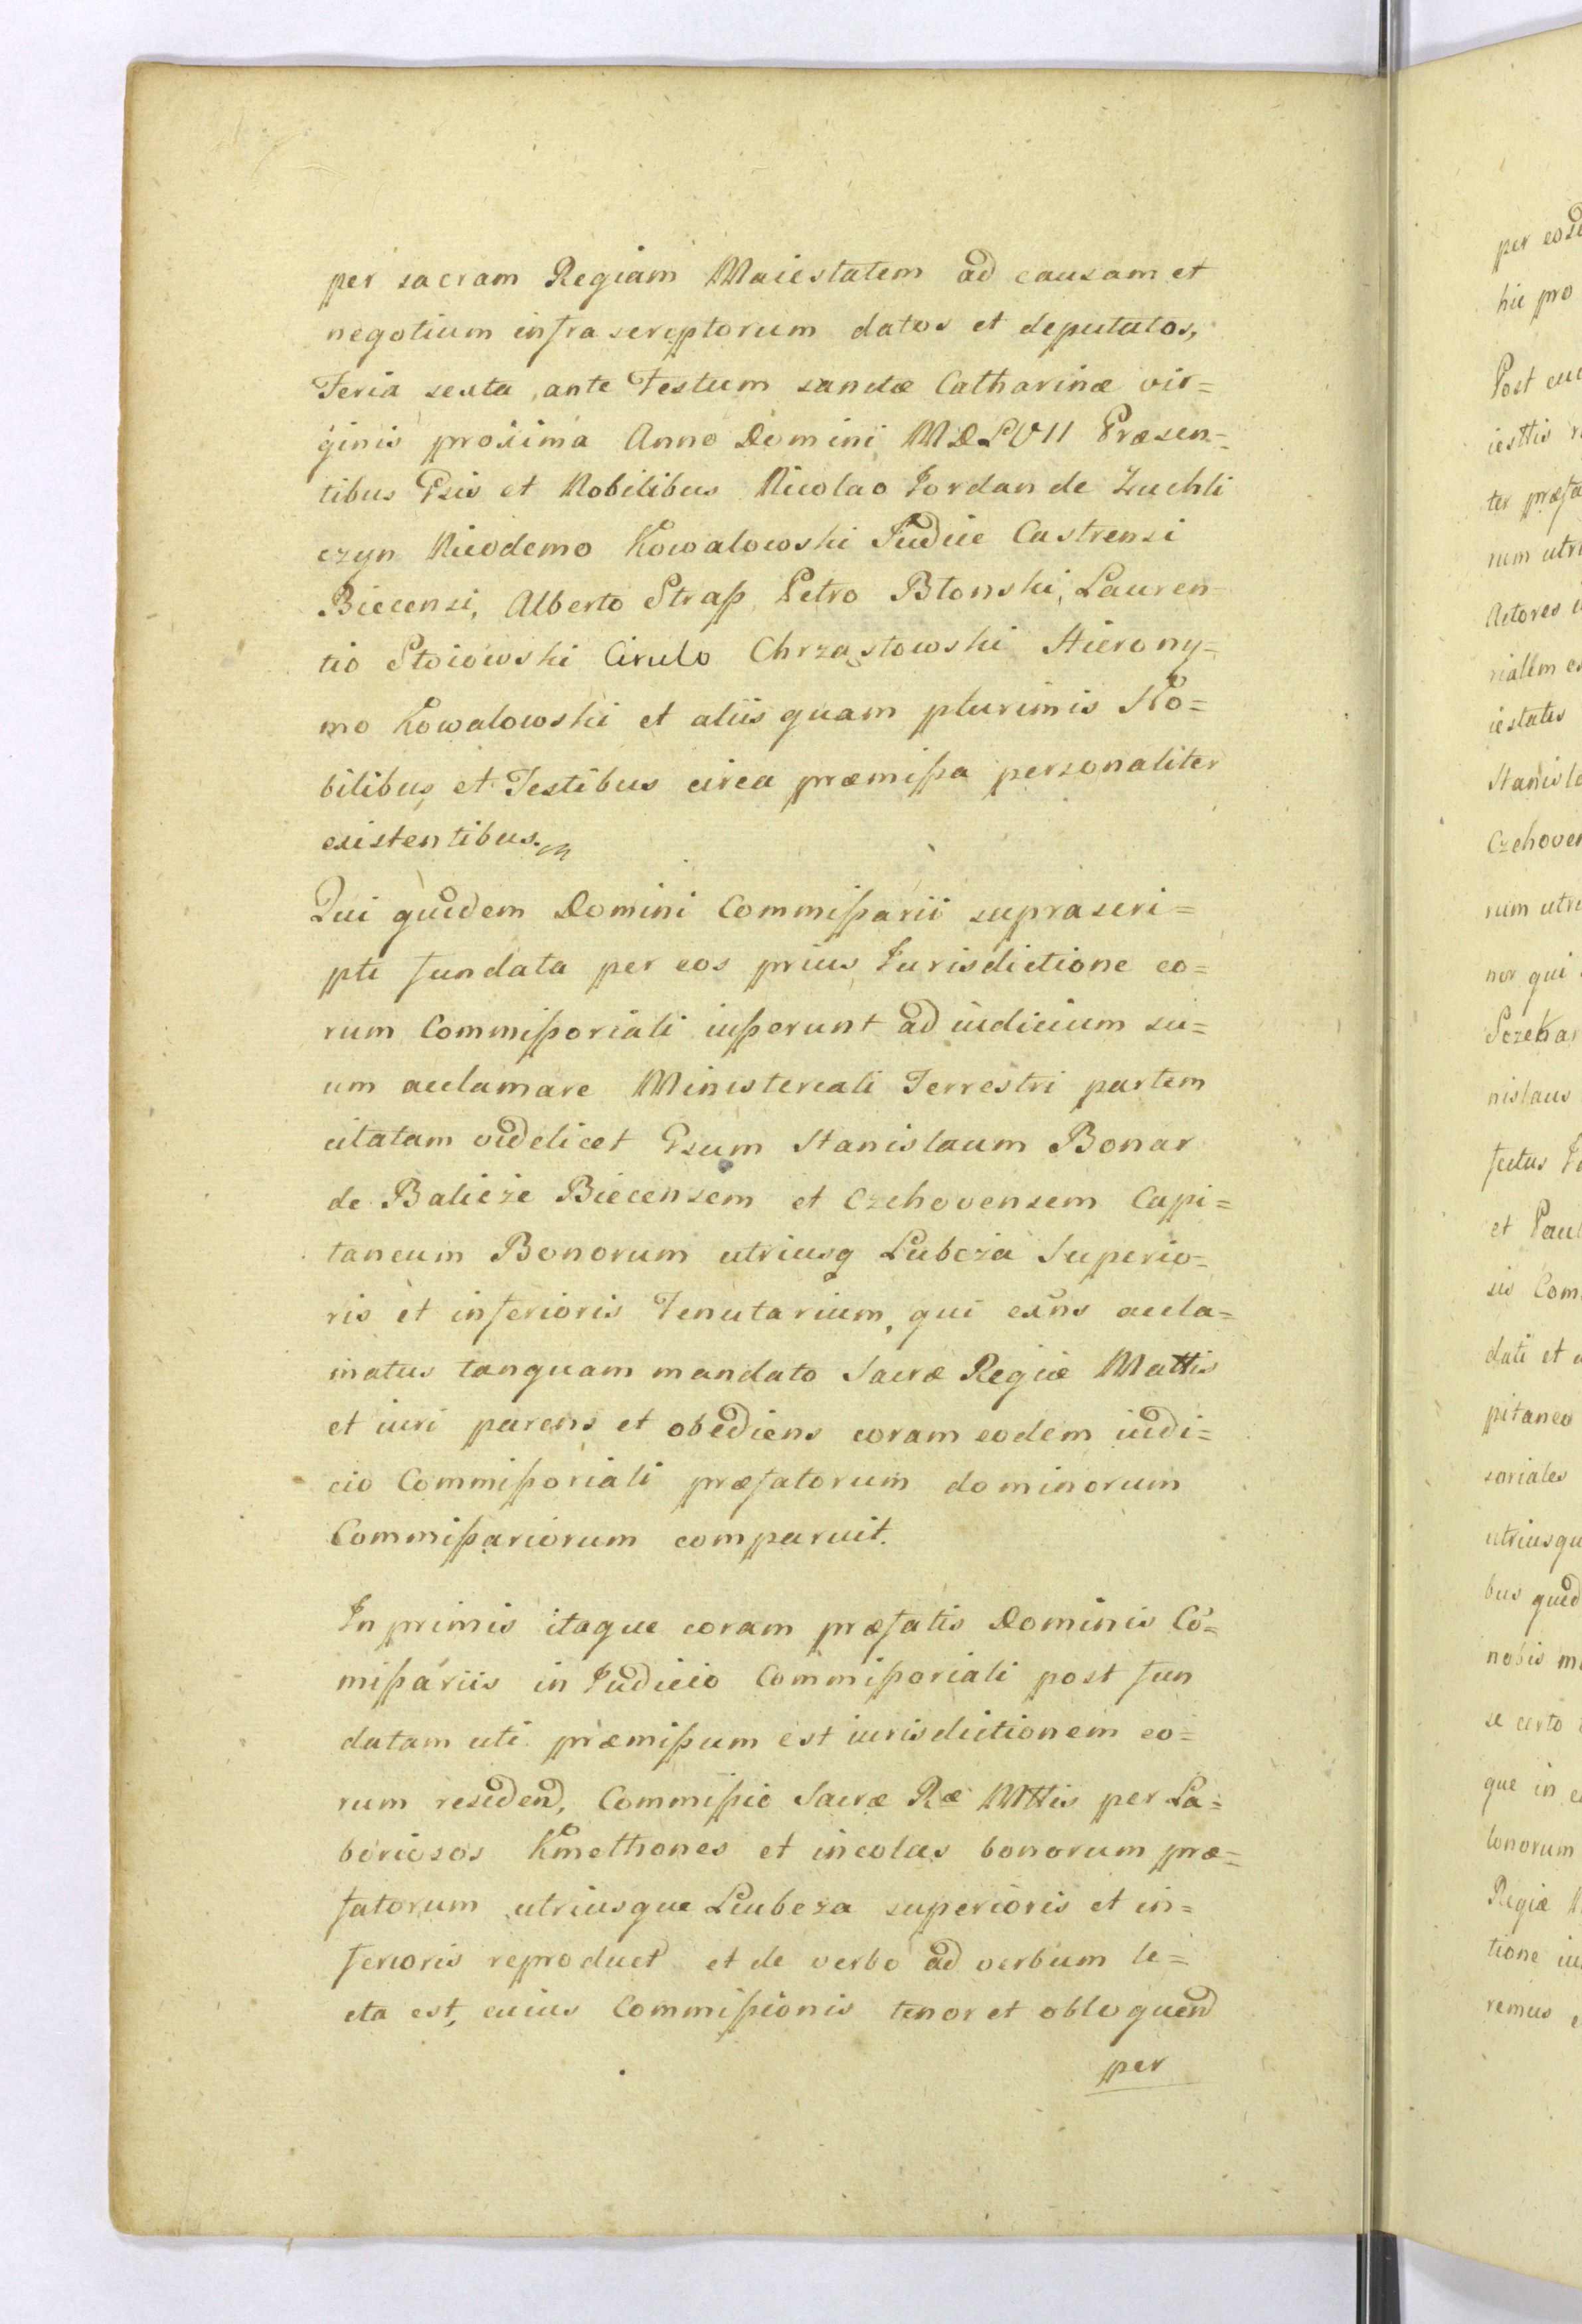 per sacram Regiam Maiestatem ad causam et
negotium infra scriptorum datos et deputatos,
Feria sexta ante Festum sanctæ Catharinæ vir=
ginis proxima Anno Domini MDLVII Præsen=
tibus Gsis et Nobilibus Nicolao Jordan de Zachli
czyn Nicodemo Kowalowski Judice Castrensi
Biecensi, Alberto Straß Petro Błonski, Lauren
tio Stoiowski Cirulo Chrząstowski Hierony=
mo Kowalowski et aliis quam plurimis No=
bilibus et Testibus circa præmißa personaliter
existentibus.
Qui quidem Domini Commißarii suprascri=
pti fundata per eos prius Jurisdictione eo=
rum Commißoriali iußerunt ad iudicium su=
um acclamare Ministeriali Terrestri partem
citatam videlicet Gsum Stanislaum Bonar
de Balicze Biecensem et Czchovensem Capi=
taneum Bonorum utriusq Lubcza Superio=
ris et inferioris Tenutarium, qui exns accla=
matus tanquam mandato Sacræ Regiæ Mattis
et iuri parens et obediens coram eodem iudi=
cio Commißoriali præfatorum dominorum
Commißariorum comparuit.
In primis itaque coram præfatis Dominis Co=
mißariis in Judicio Commißoriali post fun
datam uti præmißum est iurisdictionem eo=
rum residend, Commißio Sacræ Ræ Mttis per La=
boriosos Kmethones et incolas bonorum præ=
fatorum utriusque Liubcza superioris et in=
ferioris reproduct et de verbo ad verbum le=
cta est, cuius Commißionis tenor et obloquend
per
per
hic pro
Post
ter præfa
rum utri
Actores
iestatis
Stanisl
Czchove
rum utri
nor qui
nislaus
et Paul
sis Com
dati et
pitaneo
soriales
utriusqu
bus quid
nobis
se certo
que in
bonorum
Regiæ
tione
remus